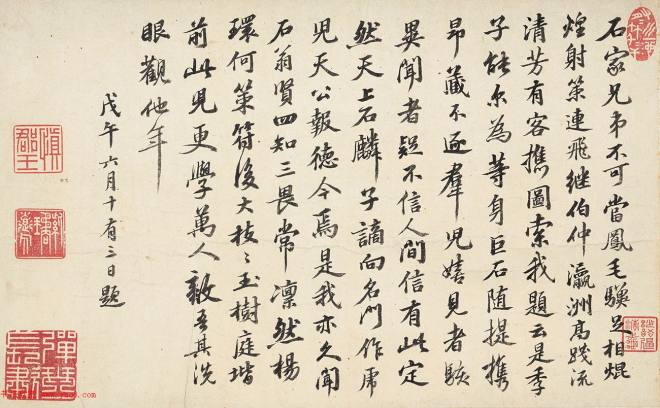 石家兄弟不可當鳳毛驥足相焜
煌射策連飛继伯仲瀛洲髙踐流
清芳有客携圖索我題云是季
子能尔為等身巨石随提携
昂藏不逐羣児嬉見者駭
異聞者疑不信人間信有此定
然天上石麟子謫向名門作席
児天公報德今焉是我亦久聞
石翁賢四知三畏常凛然楊
環何策符後大枝〻玉樹庭堦
前此児更學萬人敵吾其洗
眼觀他年
戊午六月十有三日題